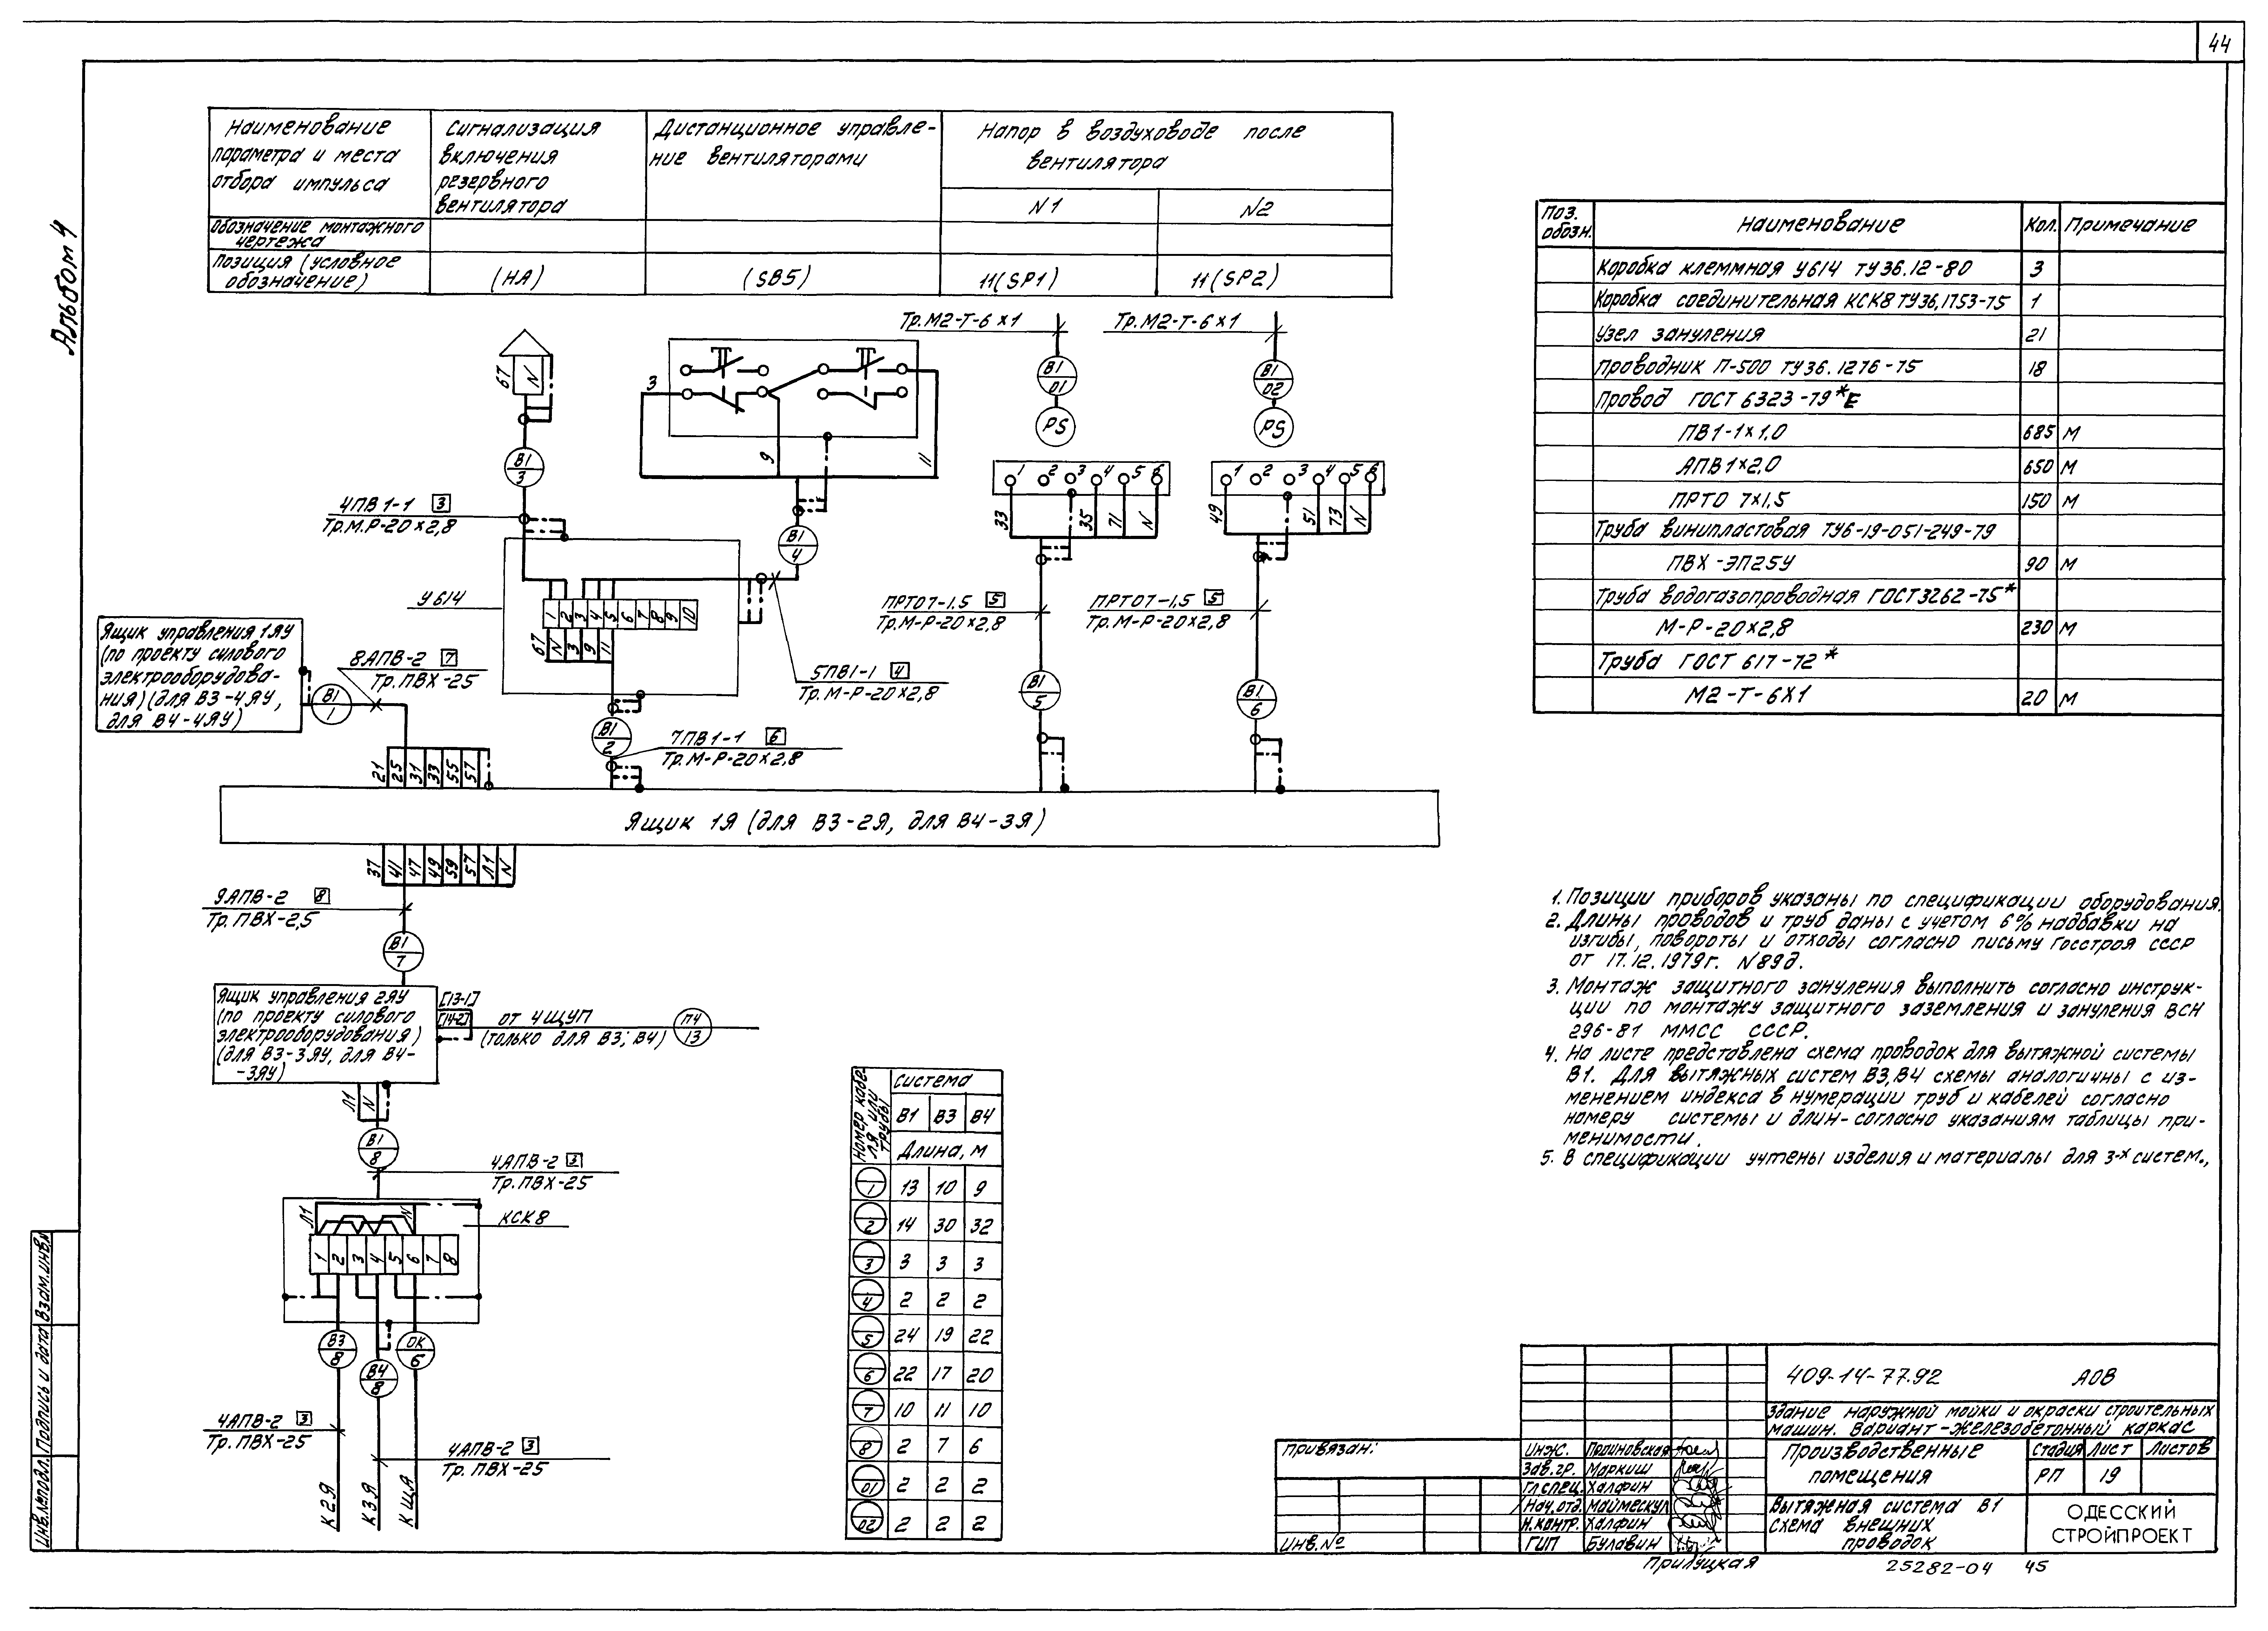 44
Альбом 4
Наименование
параметра и места
отбора импульса
Сигнализация
включения
резервного
вентилятора
Дистанционное управле-
ние вентиляторами
Напор в воздуховоде после
вентилятора
N1
N2
Обозначение монтажного
чертежа
Позиция (условное
обозначение)
(НА)
(SB5)
11(SP1)
11(SP2)
Тр.М2-Т-6х1
Тр.М2-Т-6х1
67
N
3
9
11
В1
01
В1
02
PS
PS
В1
3
1 2 3 4 5 6
1 2 3 4 5 6
33
35
71
N
49
51
73
N
4ПВ1-1 3
Тр.М.Р-20х2,8
В1
4
У614
1 2 3 4 5 6 7 8 9 10
67
N
3
9
11
ПРТО7-1.5 5
Тр.М-Р-20х2,8
ПРТО7-1.5 5
Тр.М-Р-20х2,8
5ПВ1-1 4
Тр.М-Р-20х2,8
Ящик управления 1ЯУ
(по проекту силового
электрооборудова-
ния)(для В3-4ЯУ,
для В4-4ЯУ)
8АПВ-2 7
Тр.ПВХ-25
В1
1
В1
5
В1
6
В1
2
7ПВ1-1 6
Тр.М-Р-20х2,8
21
25
31
33
55
57
Ящик 1Я (для В3-2Я, для В4-3Я)
37
41
47
49
59
57
Л1
N
9АПВ-2 8
Тр.ПВХ-2,5
В1
7
Ящик управления 2ЯУ
(по проекту силового
электрооборудования)
(для В3-3ЯУ, для В4-
-3ЯУ)
[13-1]
[14-2]
от 4ЩУП
(только для В3; В4)
П4
13
Л1
N
В1
8
4АПВ-2 3
Тр.ПВХ-25
КСК8
Л1
N
1 2 3 4 5 6 7 8
В3
8
В4
8
ОК
6
4АПВ-2 3
Тр.ПВХ-25
4АПВ-2 3
Тр.ПВХ-25
К2Я
К3Я
КЩА
Номер кабе-
ля или
трубы
Система
В1 В3 В4
Длина, м
1 13 10 9
2 14 30 32
3 3 3 3
4 2 2 2
5 24 19 22
6 22 17 20
7 10 11 10
8 2 7 6
01 2 2 2
02 2 2 2
Поз.
обозн.
Наименование
Кол.
Примечание
Коробка клеммная У614 ТУ36.12-80 3
Коробка соединительная КСК8 ТУ36.1753-75 1
Узел зануления 21
Проводник П-500 ТУ36.1276-75 18
Провод ГОСТ 6323-79*Е
ПВ1-1х1,0 685 м
АПВ1х2,0 650 м
ПРТО 7х1,5 150 м
Труба винипластовая ТУ6-19-051-249-79
ПВХ-ЭП25У 90 м
Труба водогазопроводная ГОСТ3262-75*
М-Р-20х2,8 230 м
Труба ГОСТ 617-72*
М2-Т-6х1 20 м
1. Позиции приборов указаны по спецификации оборудования.
2. Длины проводов и труб даны с учетом 6% надбавки на
изгибы, повороты и отходы согласно письму Госстроя СССР
от 17.12.1979г. N89д.
3. Монтаж защитного зануления выполнить согласно инструк-
ции по монтажу защитного заземления и зануления ВСН
296-81 ММСС СССР.
4. На листе представлена схема проводок для вытяжной системы
В1. Для вытяжных систем В3,В4 схемы аналогичны с из-
менением индекса в нумерации труб и кабелей согласно
номеру системы и длин-согласно указаниям таблицы при-
менимости.
5. В спецификации учтены изделия и материалы для 3-х систем.,
409-14-77.92 АОВ
Здание наружной мойки и окраски строительных
машин. Вариант-железобетонный каркас
Производственные
помещения
Стадия Лист Листов
РП 19
Вытяжная система В1
схема внешних
проводок
ОДЕССКИЙ
СТРОЙПРОЕКТ
Привязан:
Инв.№
Инж.
Зав.гр. Маркиш
Гл.спец. Халфин
Нач.отд. Маймескул
Н.контр. Халфин
ГИП Булавин
Прилуцкая
25282-04 45
Инв.№подл. Подпись и дата Взам.инв.№